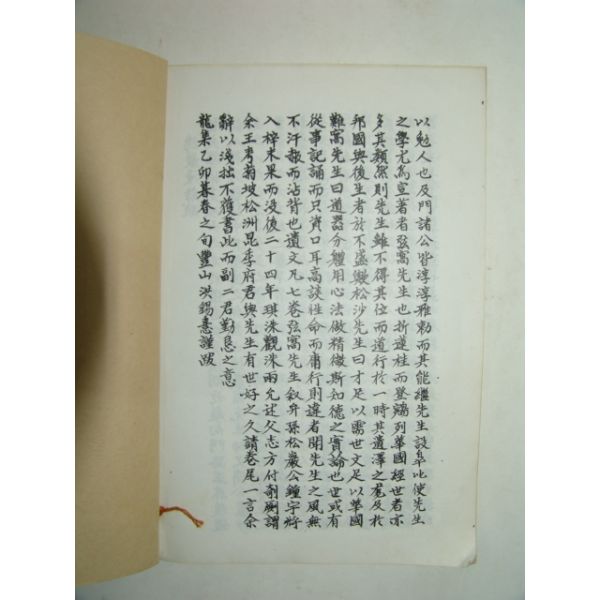 以勉人也及門諸公皆淳淳雅勅而其能繼先生設皐比使先生
之學尤爲宣著者弦窩先生也折蓮桂而登瀛列華國經世者亦
多其顏然則先生雖不得其位而道行於一時其遺澤之尾及於
邦國與後生者於不盛歟松沙先生曰才足以需世文足以華國
難窩先生曰道器分體用心法倣精微斯知德之實論也世或有
從事記誦而只資口耳高談性命而庸行則違者聞先生之風無
不汗赧而沾背也遺文凡七卷弦窩先生叙弁孫松巖公鐘宇將
入梓未果而沒後二十四年琪洙觀洙兩允述父志方付剞劂謂
余王考菊坡松洲昆季府君與先生有世好之久請卷尾一言余
辭以淺拙不獲書此而副二君勤懇之意
龍集乙卯暮春之旬豐山洪錫憙謹跋